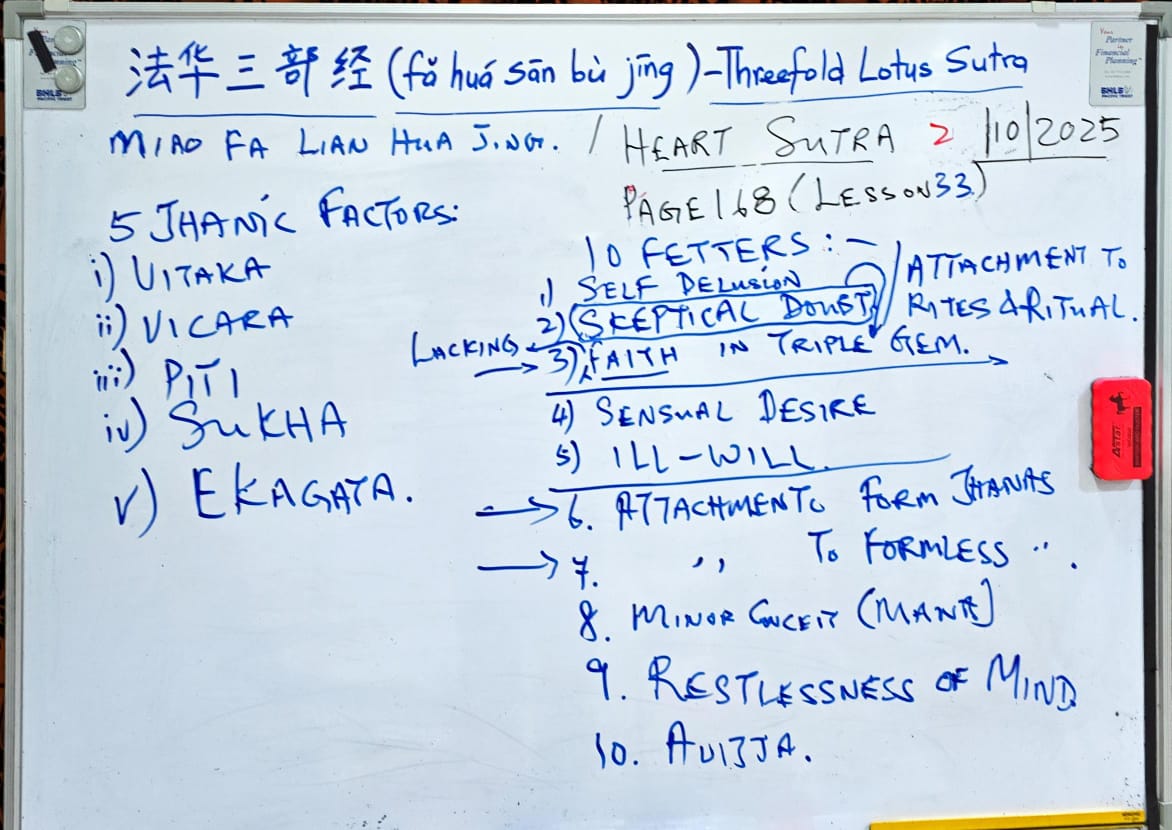 法华三部经 (fǎ huá sān bù jīng) - Threefold Lotus Sutra
MIAO FA LIAN HUA JING. / HEART SUTRA 2/10/2025
PAGE 168 (LESSON 33)
5 JHANIC FACTORS:
i) VITAKA
ii) VICARA
iii) PITI
iv) SUKHA
v) EKAGATA.
10 FETTERS :-
1) SELF DELUSION
2) (SKEPTICAL DOUBT)
/ ATTACHMENT TO
RITES & RITUAL.
LACKING → 3) FAITH IN TRIPLE GEM.
4) SENSUAL DESIRE
5) ILL-WILL.
→ 6. ATTACHMENT TO FORM JHANAS
→ 7. ,, TO FORMLESS ".
8. MINOR CONCEIT (MANA)
9. RESTLESSNESS OF MIND
10. AVIJJA.
Your
Partner
in
Financial
Planning
BHLB
PACIFIC TRUST
Astar